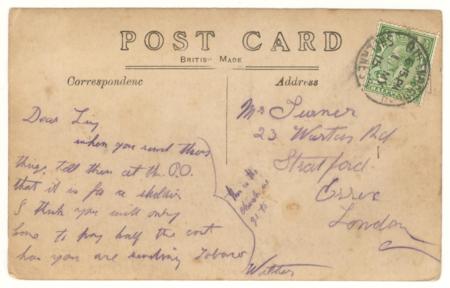 POST CARD
BRITISH MADE
Correspondence
Address
Dear
when you send those
things, tell them at the P.O.
that it is for a soldier
I think you will only
have to pay half the cost
how you are sending Tobacco
this is the
church we
go to
Mr Turner
23 Rd
Stratford
Essex
London